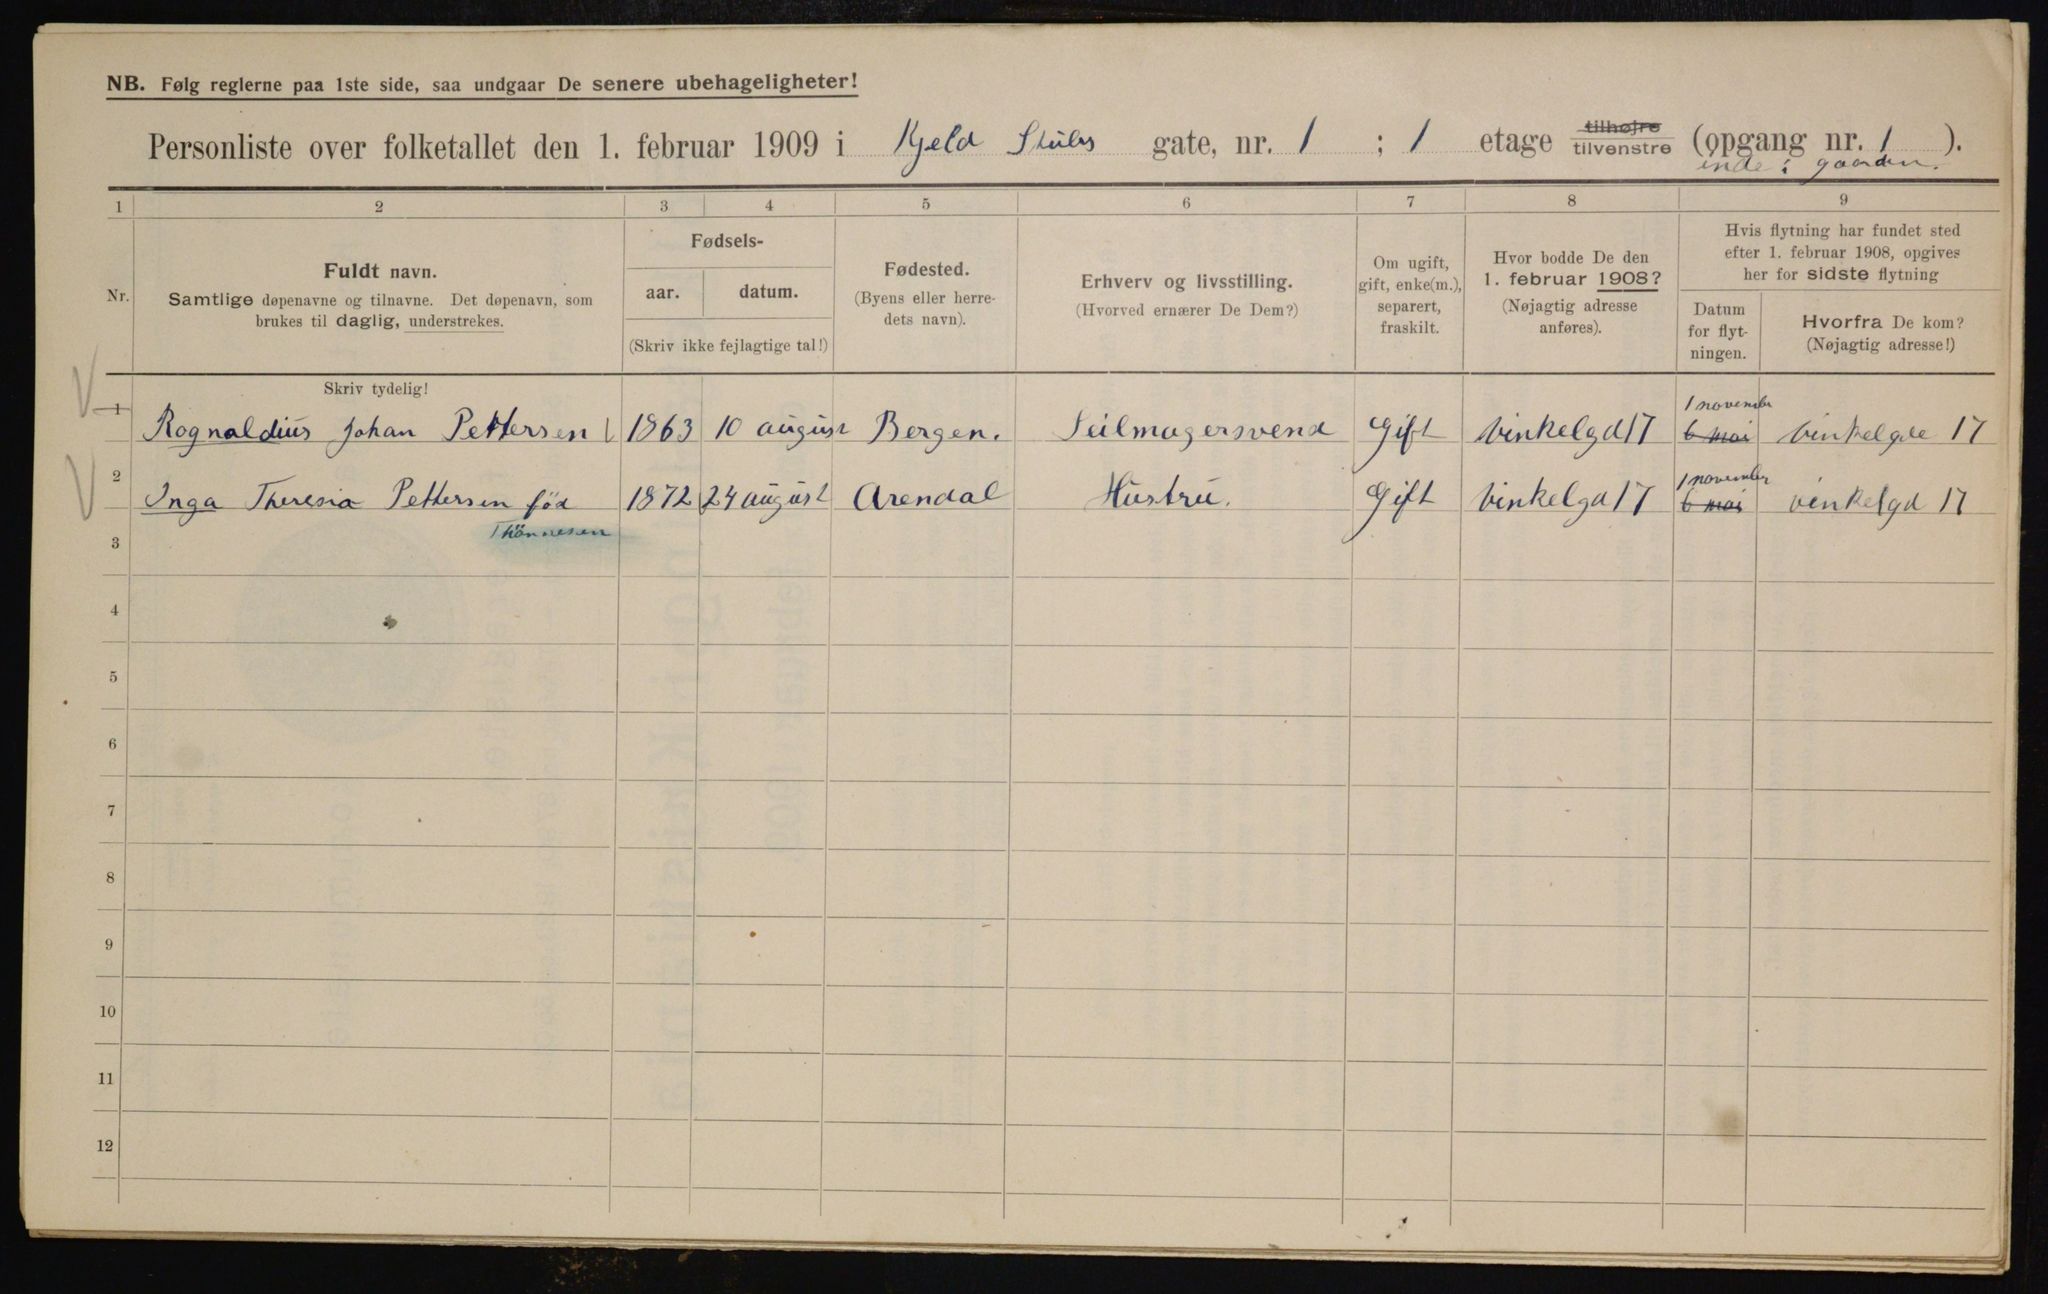 NB. Følg reglerne paa 1ste side, saa undgaar De senere ubehageligheter!
Personliste over folketallet den 1. februar 1909 i Kjeld Stubs gate, nr. 1 ; 1 etage tilhøjre tilvenstre (opgang nr. 1 ).
inde i gaarden.
1 2 3 4 5 6 7 8 9
Nr.
Fuldt navn.
Samtlige døpenavne og tilnavne. Det døpenavn, som
brukes til daglig, understrekes.
Fødsels-
aar. datum.
(Skriv ikke fejlagtige tal!)
Fødested.
(Byens eller herre-
dets navn).
Erhverv og livsstilling.
(Hvorved ernærer De Dem?)
Om ugift,
gift, enke(m.),
separert,
fraskilt.
Hvor bodde De den
1. februar 1908?
(Nøjagtig adresse
anføres).
Hvis flytning har fundet sted
efter 1. februar 1908, opgives
her for sidste flytning
Datum
for flyt-
ningen.
Hvorfra De kom?
(Nøjagtig adresse!)
Skriv tydelig!
1 november
1 Rognaldius Johan Pettersen 1863 10 august Bergen. Seilmagersvend Gift Vinkelgd 17 6 mai Vinkelgde 17
1 november
2 Inga Theresia Pettersen föd 1872 24 august Arendal Hustru. Gift Vinkelgd 17 6 mai vinkelgd 17
Thönnesen
3
4
5
6
7
8
9
10
11
12